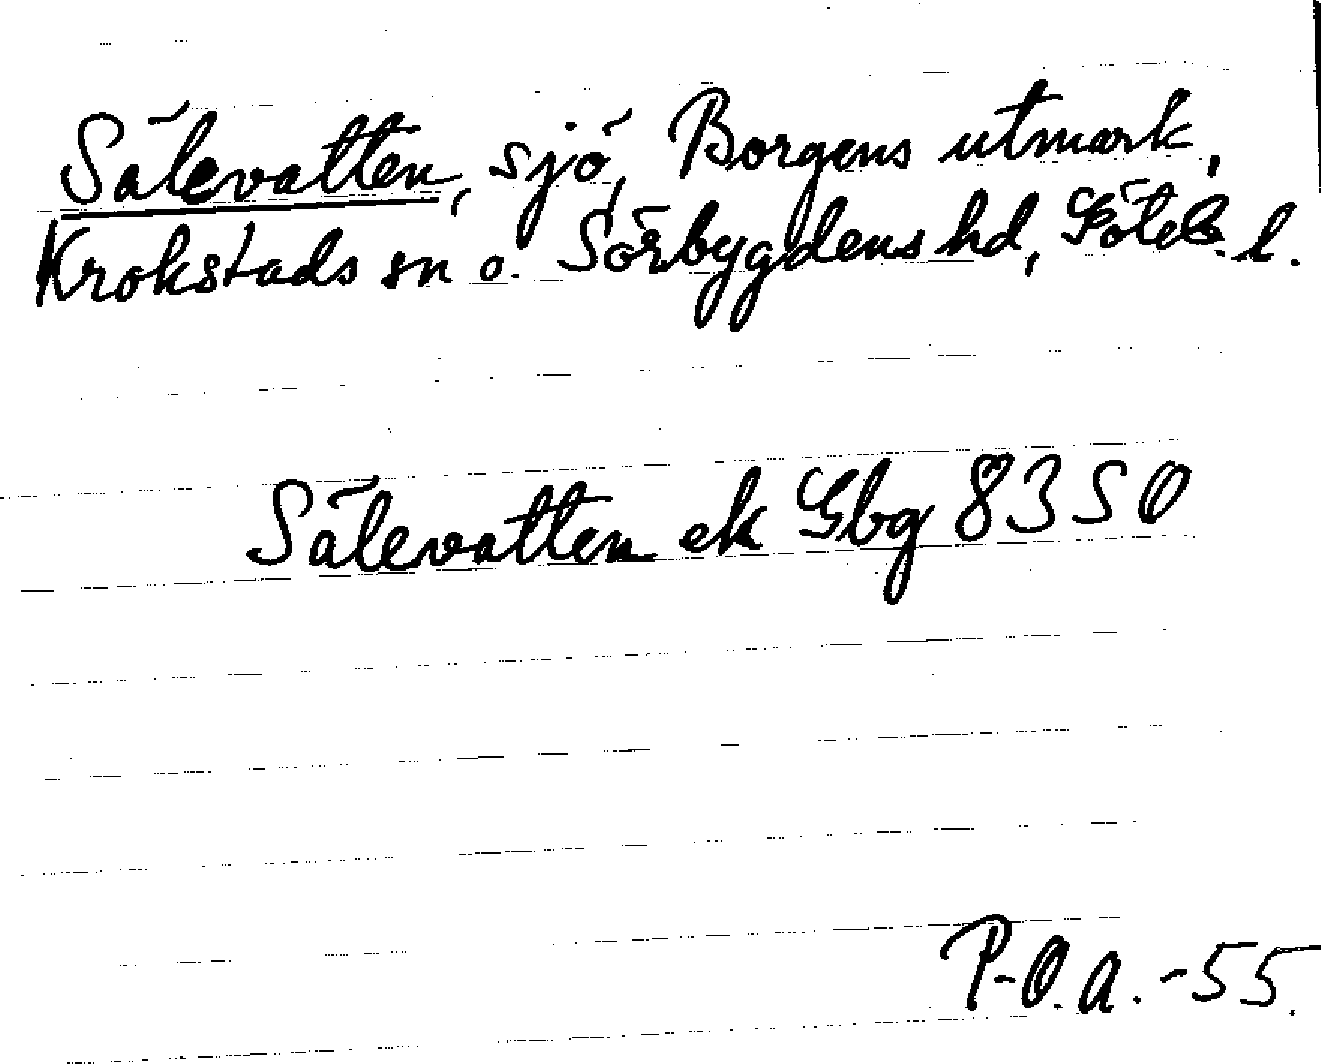 Sälevatten, sjö, Borgens utmark,
Krokstads sn o. Sörbygdens hd, Göteb. l.
Sälevatten ek Gbg 8350
P-O.A.-55.